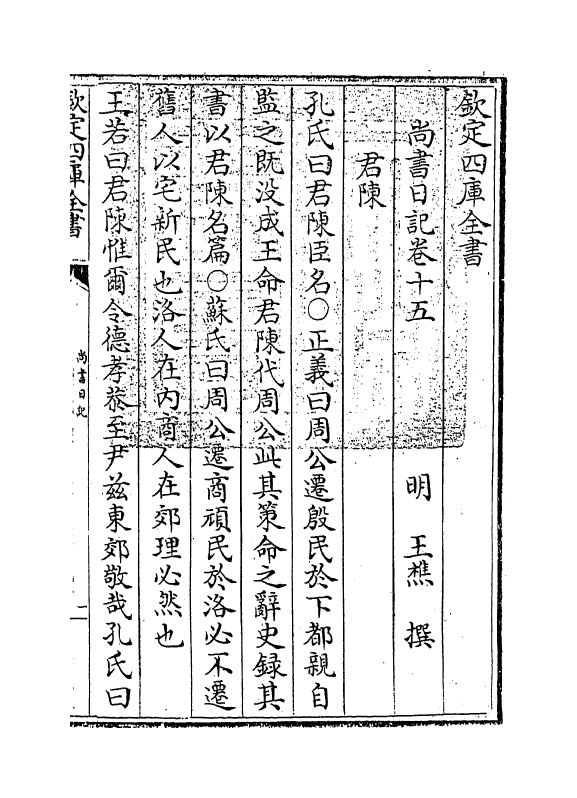 欽定四庫全書
尚書日記卷十五
明 王樵 撰
君陳
孔氏曰君陳臣名○正義曰周公遷殷民於下都親自
監之既没成王命君陳代周公此其策命之辭史録其
書以君陳名篇○蘇氏曰周公遷商頑民於洛必不遷
舊人以宅新民也洛人在内商人在郊理必然也
王若曰君陳惟爾令德孝恭至尹兹東郊敬哉孔氏曰
欽定四庫全書
尚書日記